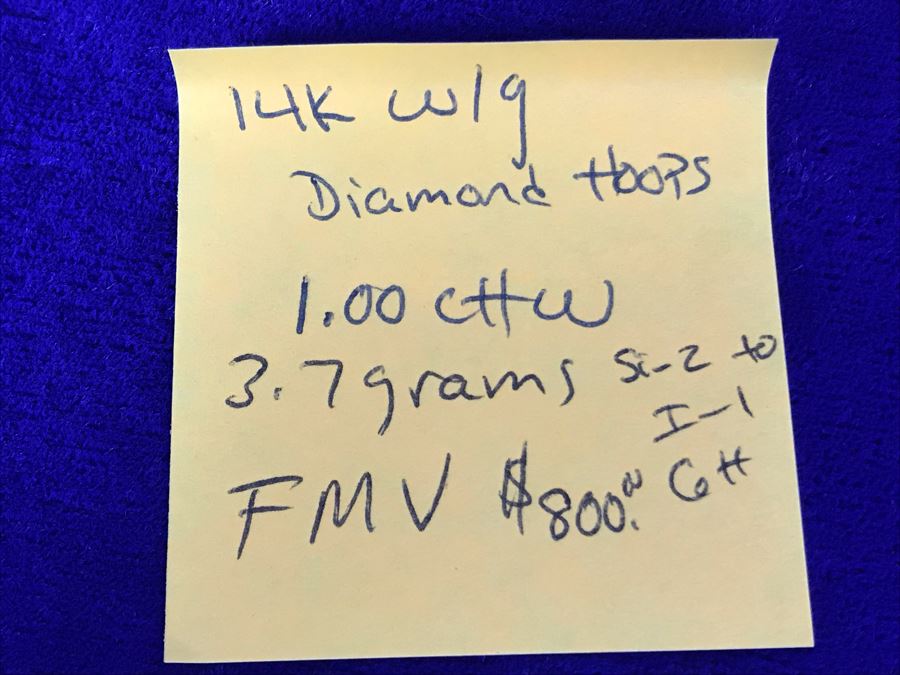 14K w/g
Diamond Hoops
1.00 cttw
3.7 grams Si-2 to
I-1
FMV $800.00 GH